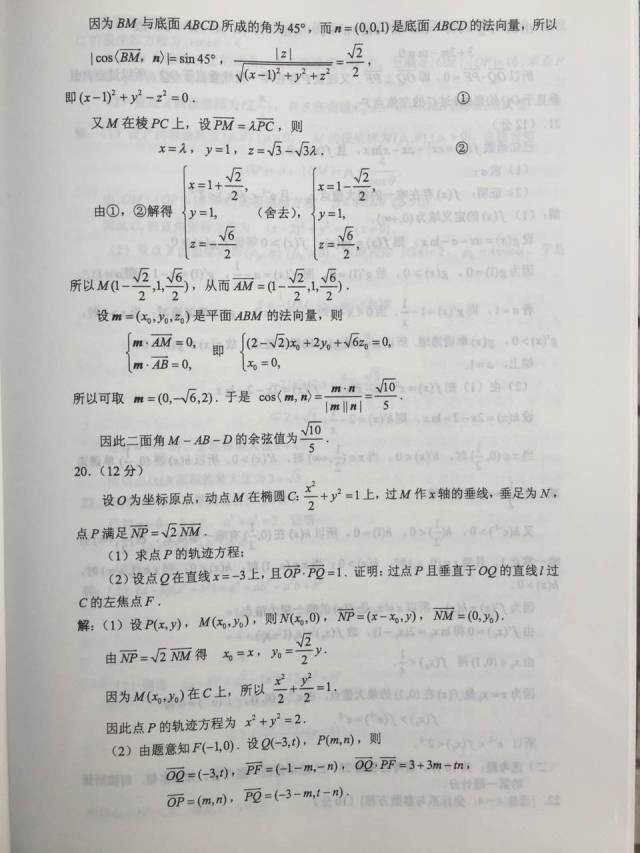 因为 BM 与底面 ABCD 所成的角为 45°，而 n = (0,0,1) 是底面 ABCD 的法向量，所以
|cos⟨BM, n⟩| = sin 45°， |z| / √((x−1)²+y²+z²) = √2/2，
即 (x−1)²+y²−z²=0． ①
又 M 在棱 PC 上，设 PM = λPC，则
x = λ，y = 1，z = √3 − √3λ． ②
由①，②解得 { x = 1+√2/2, y = 1, z = −√6/2 （舍去）, { x = 1−√2/2, y = 1, z = √6/2.
所以 M(1−√2/2, 1, √6/2)，从而 AM = (1−√2/2, 1, √6/2)．
设 m = (x₀, y₀, z₀) 是平面 ABM 的法向量，则
{ m·AM = 0, m·AB = 0, 即 { (2−√2)x₀+2y₀+√6z₀ = 0, x₀ = 0,
所以可取 m = (0,−√6,2)．于是 cos⟨m, n⟩ = m·n / |m||n| = √10/5．
因此二面角 M − AB − D 的余弦值为 √10/5．
20.（12 分）
设 O 为坐标原点，动点 M 在椭圆 C: x²/2 + y² = 1 上，过 M 作 x 轴的垂线，垂足为 N，
点 P 满足 NP = √2 NM．
（1）求点 P 的轨迹方程；
（2）设点 Q 在直线 x = −3 上，且 OP·PQ = 1．证明：过点 P 且垂直于 OQ 的直线 l 过
C 的左焦点 F．
解：（1）设 P(x, y)，M(x₀, y₀)，则 N(x₀, 0)，NP = (x−x₀, y)，NM = (0, y₀)．
由 NP = √2 NM 得 x₀ = x，y₀ = √2/2 y．
因为 M(x₀, y₀) 在 C 上，所以 x²/2 + y²/2 = 1．
因此点 P 的轨迹方程为 x²+y² = 2．
（2）由题意知 F(−1,0)．设 Q(−3,t)，P(m,n)，则
OQ = (−3,t)，PF = (−1−m,−n)，OQ·PF = 3+3m−tn，
OP = (m,n)，PQ = (−3−m,t−n)．